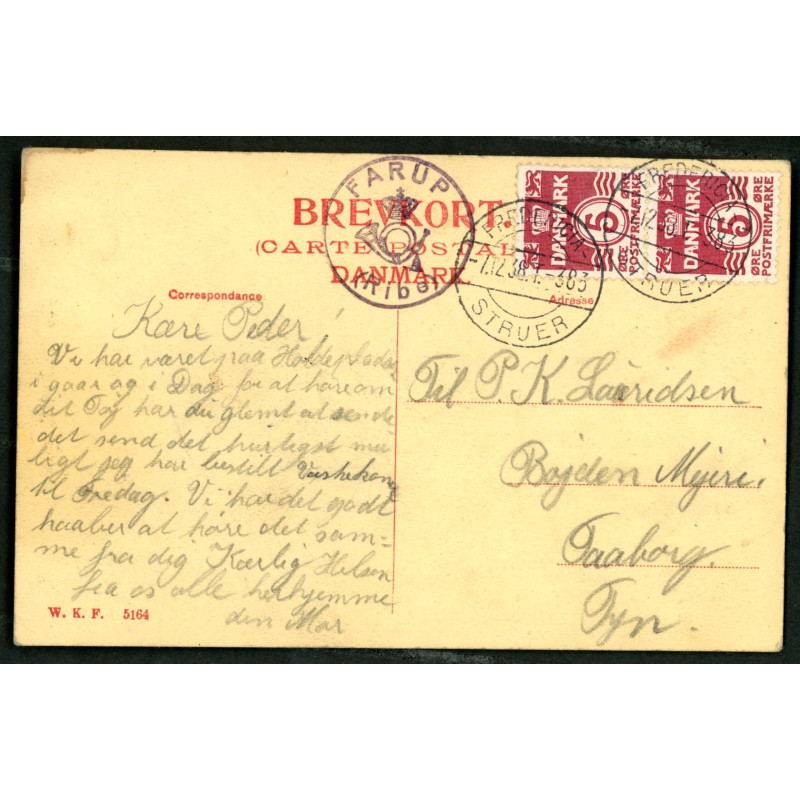 FARUP
(Ribe)
BREVKORT.
(CARTE POSTALE
DANMARK
FREDERICIA-
-7.12.38 1.-383
STRUER
DANMARK
5
ØRE
POSTFRIMÆRKE
FREDERICIA
383
STRUER
DANMARK
5
ØRE
POSTFRIMÆRKE
Correspondance
Adresse
Kære Peder!
Vi har været paa
i gaar og i Dag for at høre om
dit Tøj har du glemt at sende
det send det hurtigst mu
ligt jeg har bestilt Vaskekone
til Fredag. Vi har det godt
haaber at høre det sam-
me fra dig Kærlig Hilsen
fra os alle herhjemme
din Mor
Til P. K. Lauridsen
Bojden Mejeri.
Faaborg.
Fyn.
W. K. F. 5164